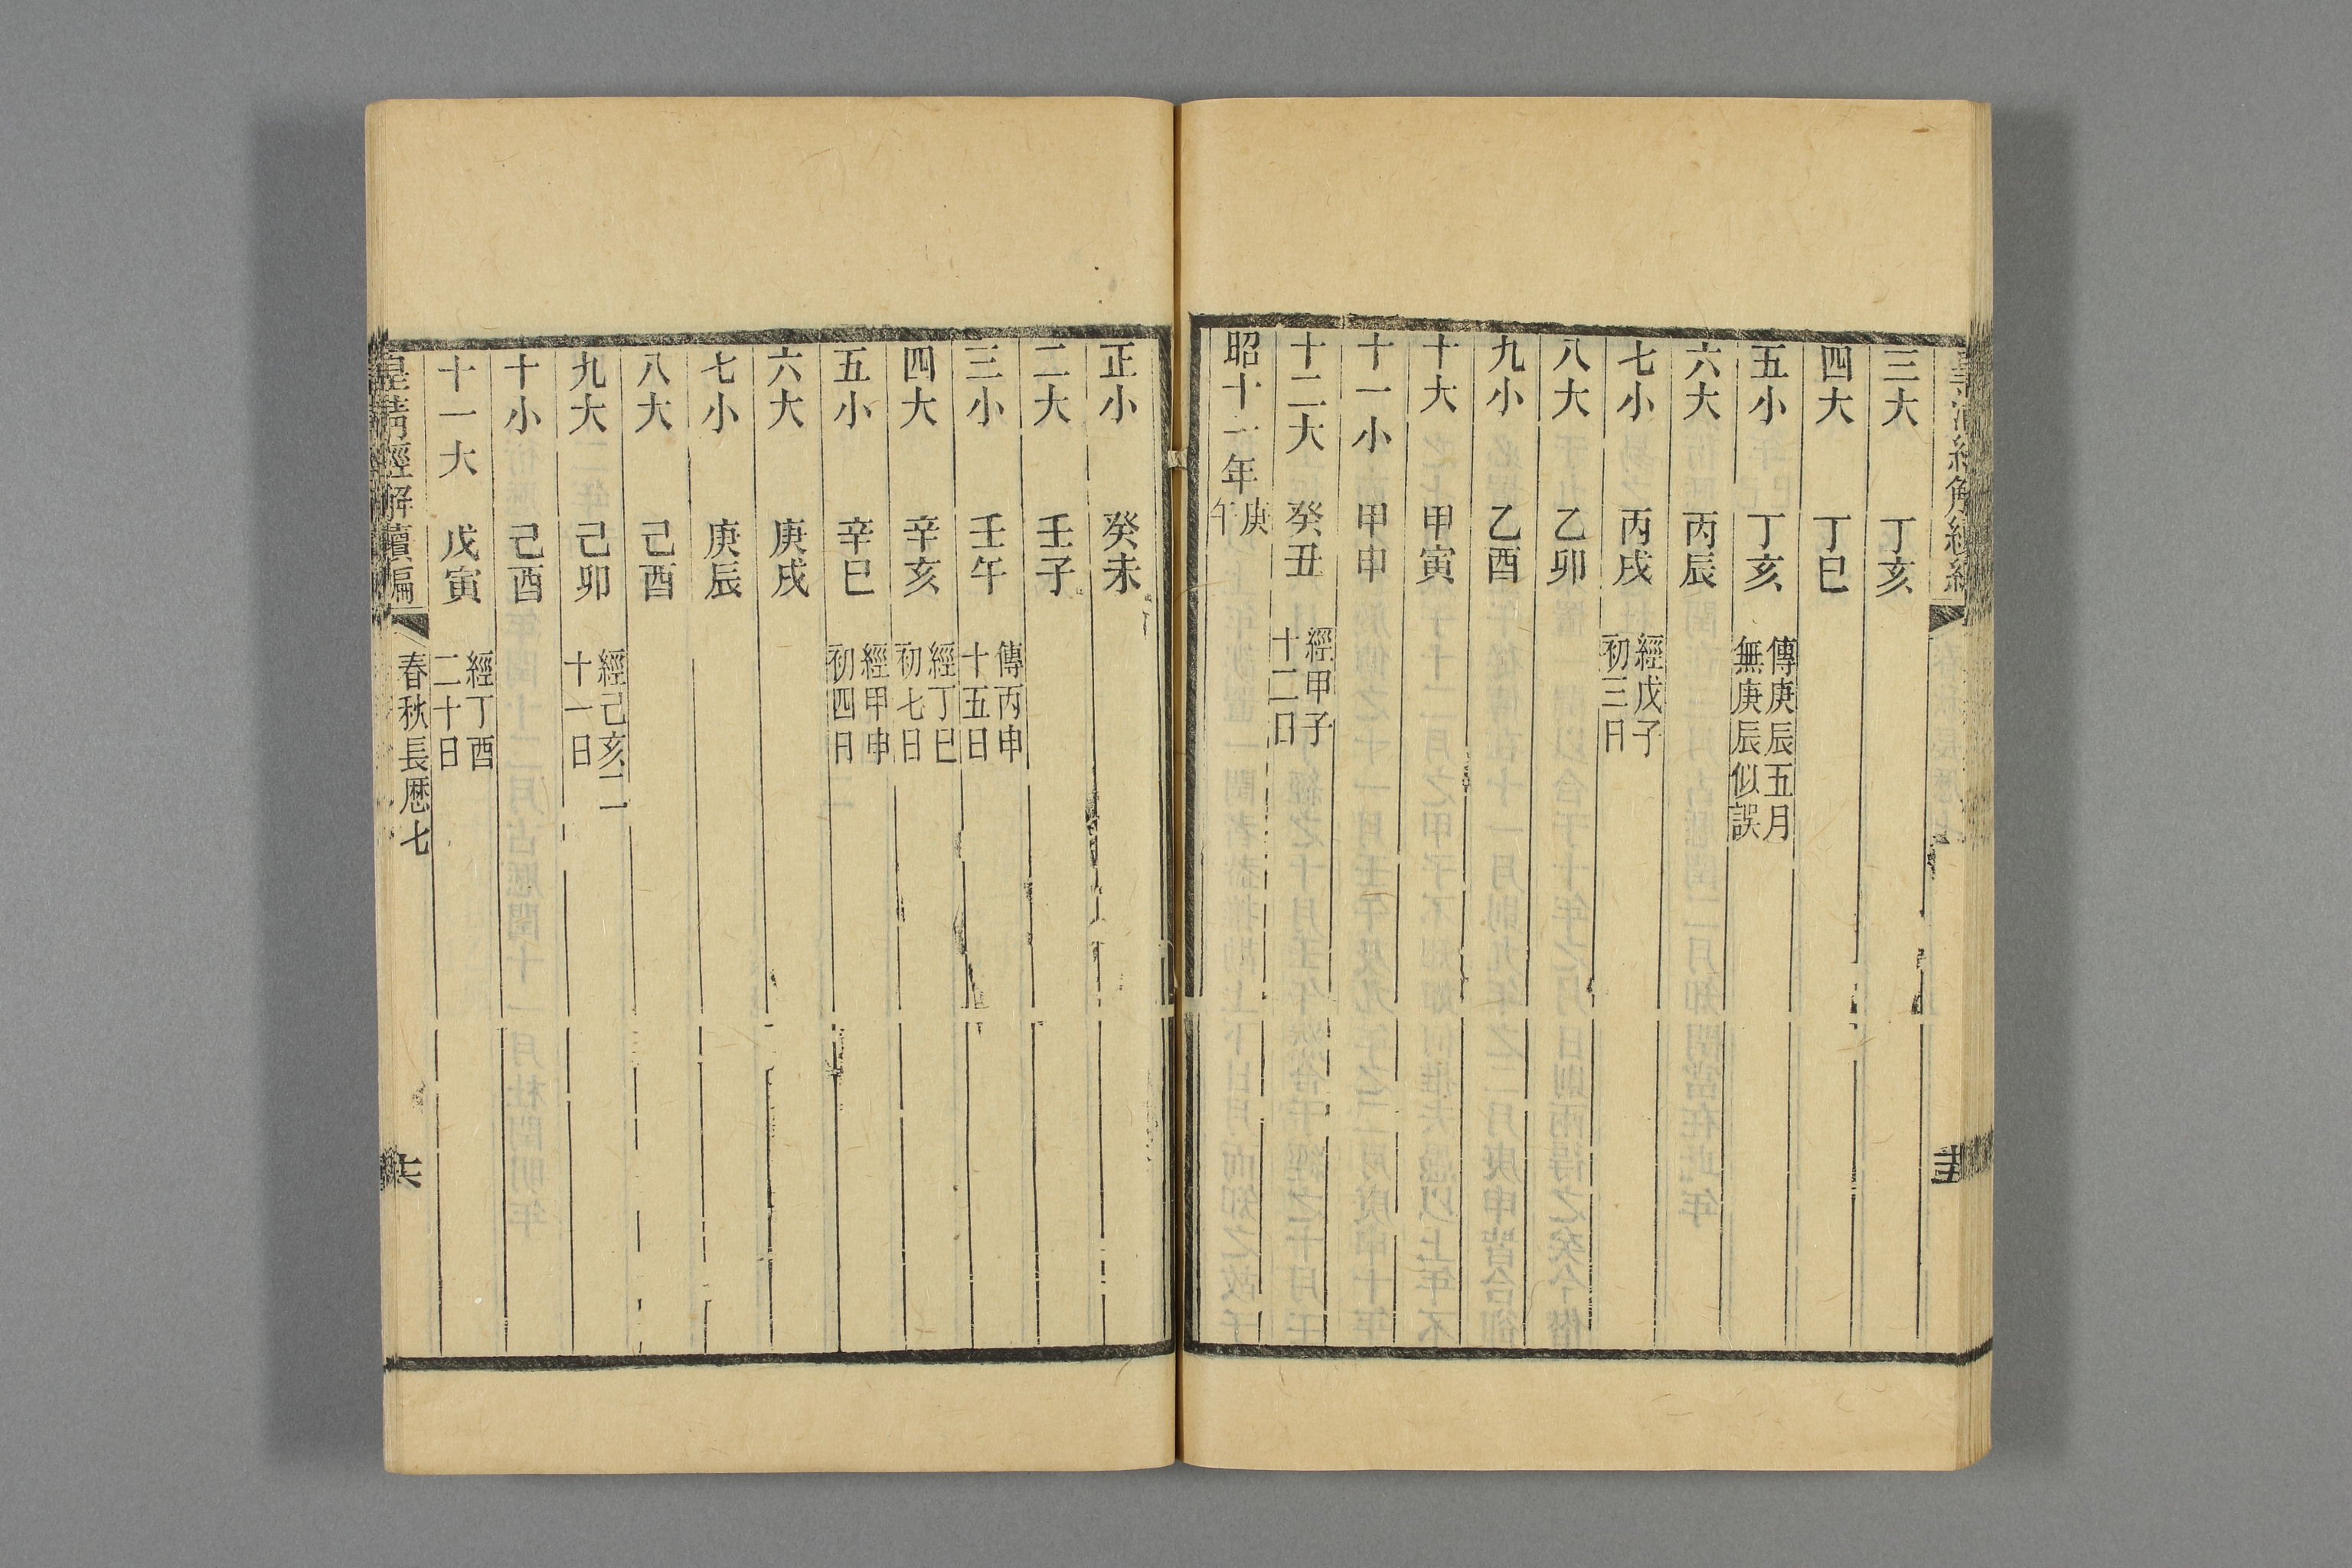 三大　丁亥
四大　丁巳
五小　丁亥　傳庚辰五月
無庚辰似誤
六大　丙辰
七小　丙戌　經戊子
初三日
八大　乙卯
九小　乙酉
十大　甲寅
十一小　甲申
十二大　癸丑　經甲子
十二日
昭十一年庚
午
正小　癸未
二大　壬子
三小　壬午　傳丙申
十五日
四大　辛亥　經丁巳
初七日
五小　辛巳　經甲申
初四日
六大　庚戌
七小　庚辰
八大　己酉
九大　己卯　經己亥二
十一日
十小　己酉
十一大　戊寅　經丁酉
二十日
皇清經解續編　春秋長厯七